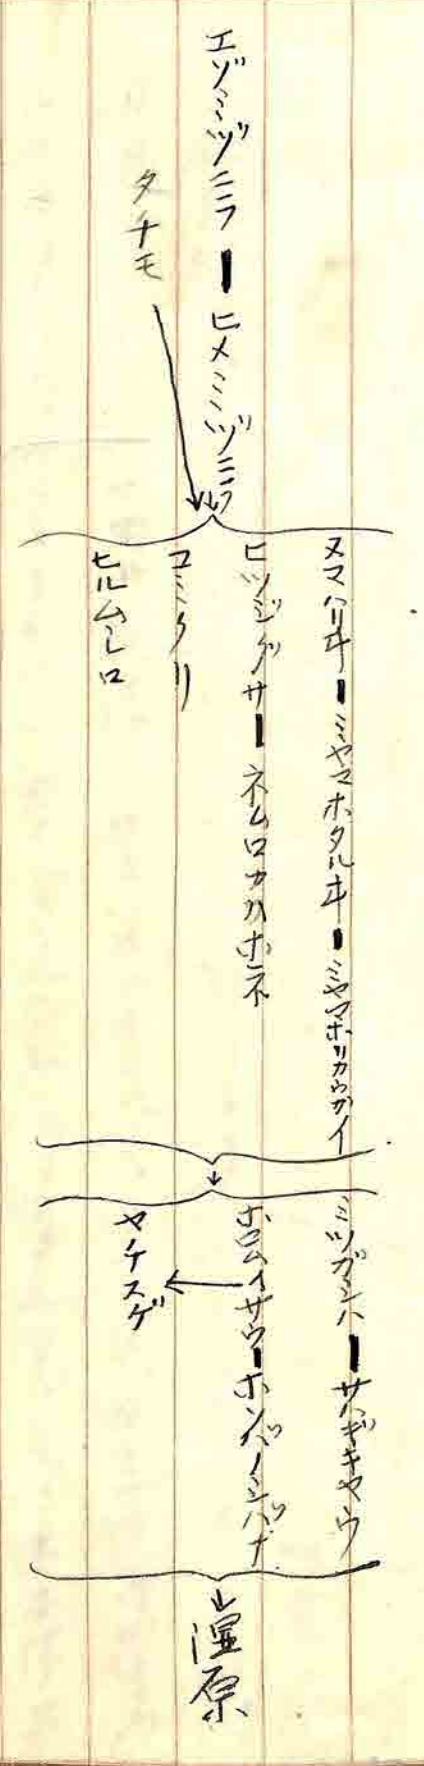 エゾミヅニラ ー ヒメミヅニラ
タチモ
ヌマハリヰ ー ミヤマホタルヰ ー ミヤマホリカウガイ
ヒツジグサ ー ネムロカハホネ
コミクリ
ヒルムシロ
ミツガシハ ー サハギキャウ
ホロムイサウ ー ホソバノシバナ
ヤチスゲ
湿原